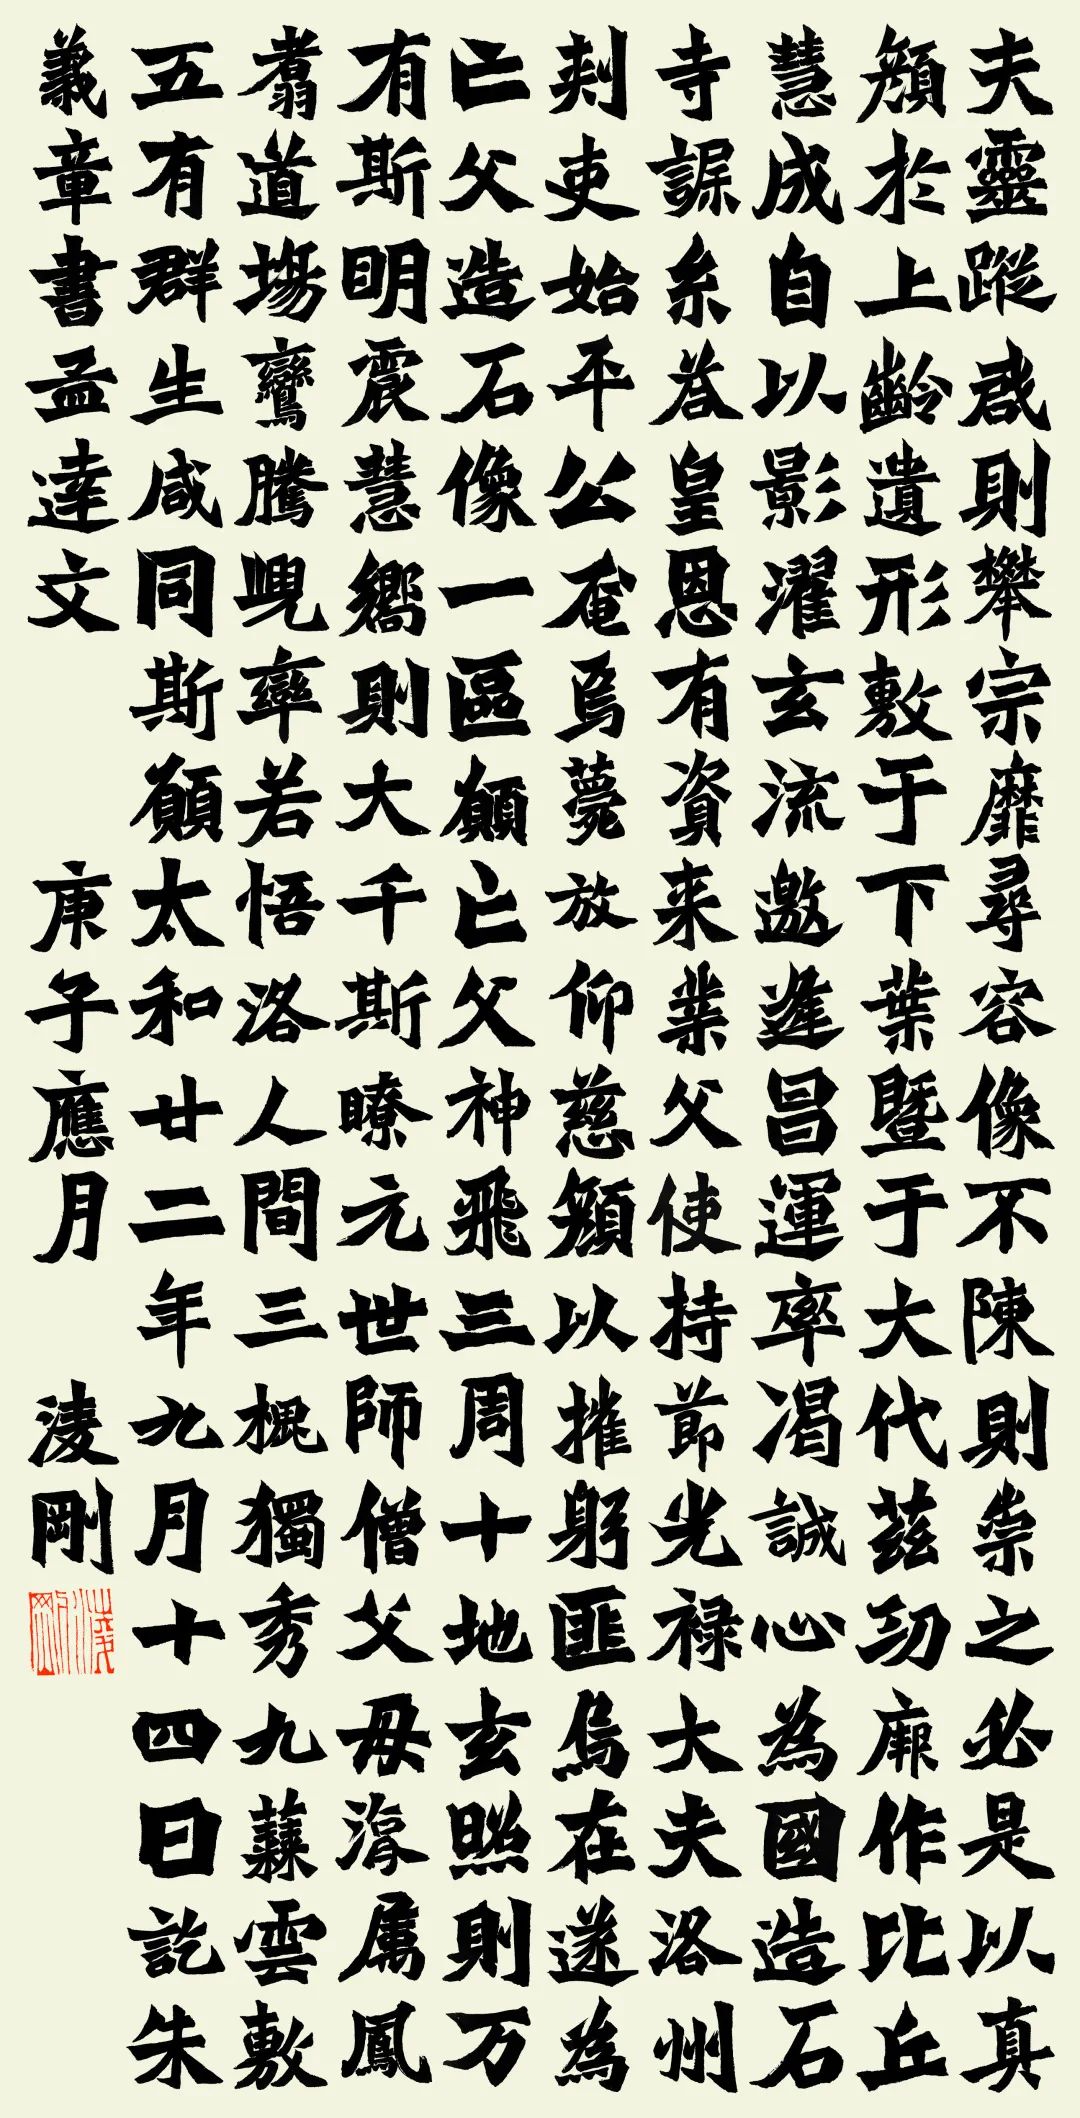 夫靈蹤啟則攀宗靡尋容像不陳則崇之必是以真
顏於上齡遺形敷于下葉暨于大代茲功厥作比丘
慧成自以影濯玄流邀逢昌運率渴誠心為國造石
寺糸答皇恩有資来業父使持節光祿大夫洛州
刺史始平公奄焉薨放仰慈顏以摧躬匪烏在遂為
亡父造石像一區願亡父神飛三周十地玄照則万
有斯明震慧嚮則大千斯瞭元世師僧父母眷属鳳
翥道場鸞騰兜率若悟洛人間三槐獨秀九蕀雲敷
五有群生咸同斯願太和廿二年九月十四日訖朱
義章書孟達文 庚子應月 淩剛